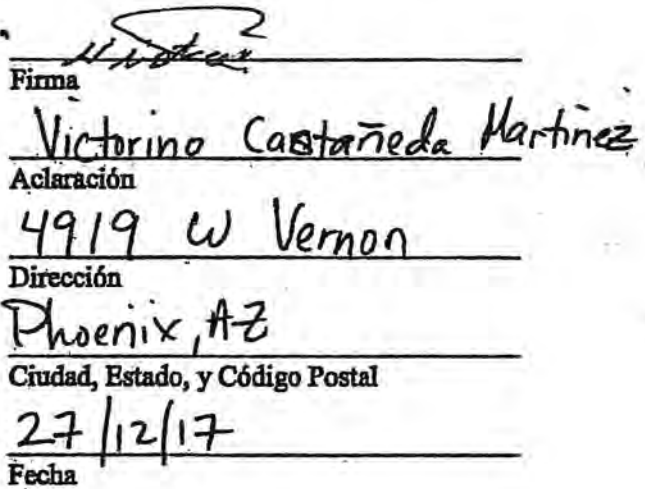 Firma
Victorino Castañeda Martinez
Aclaración
4919 W Vernon
Dirección
Phoenix, AZ
Ciudad, Estado, y Código Postal
27/12/17
Fecha